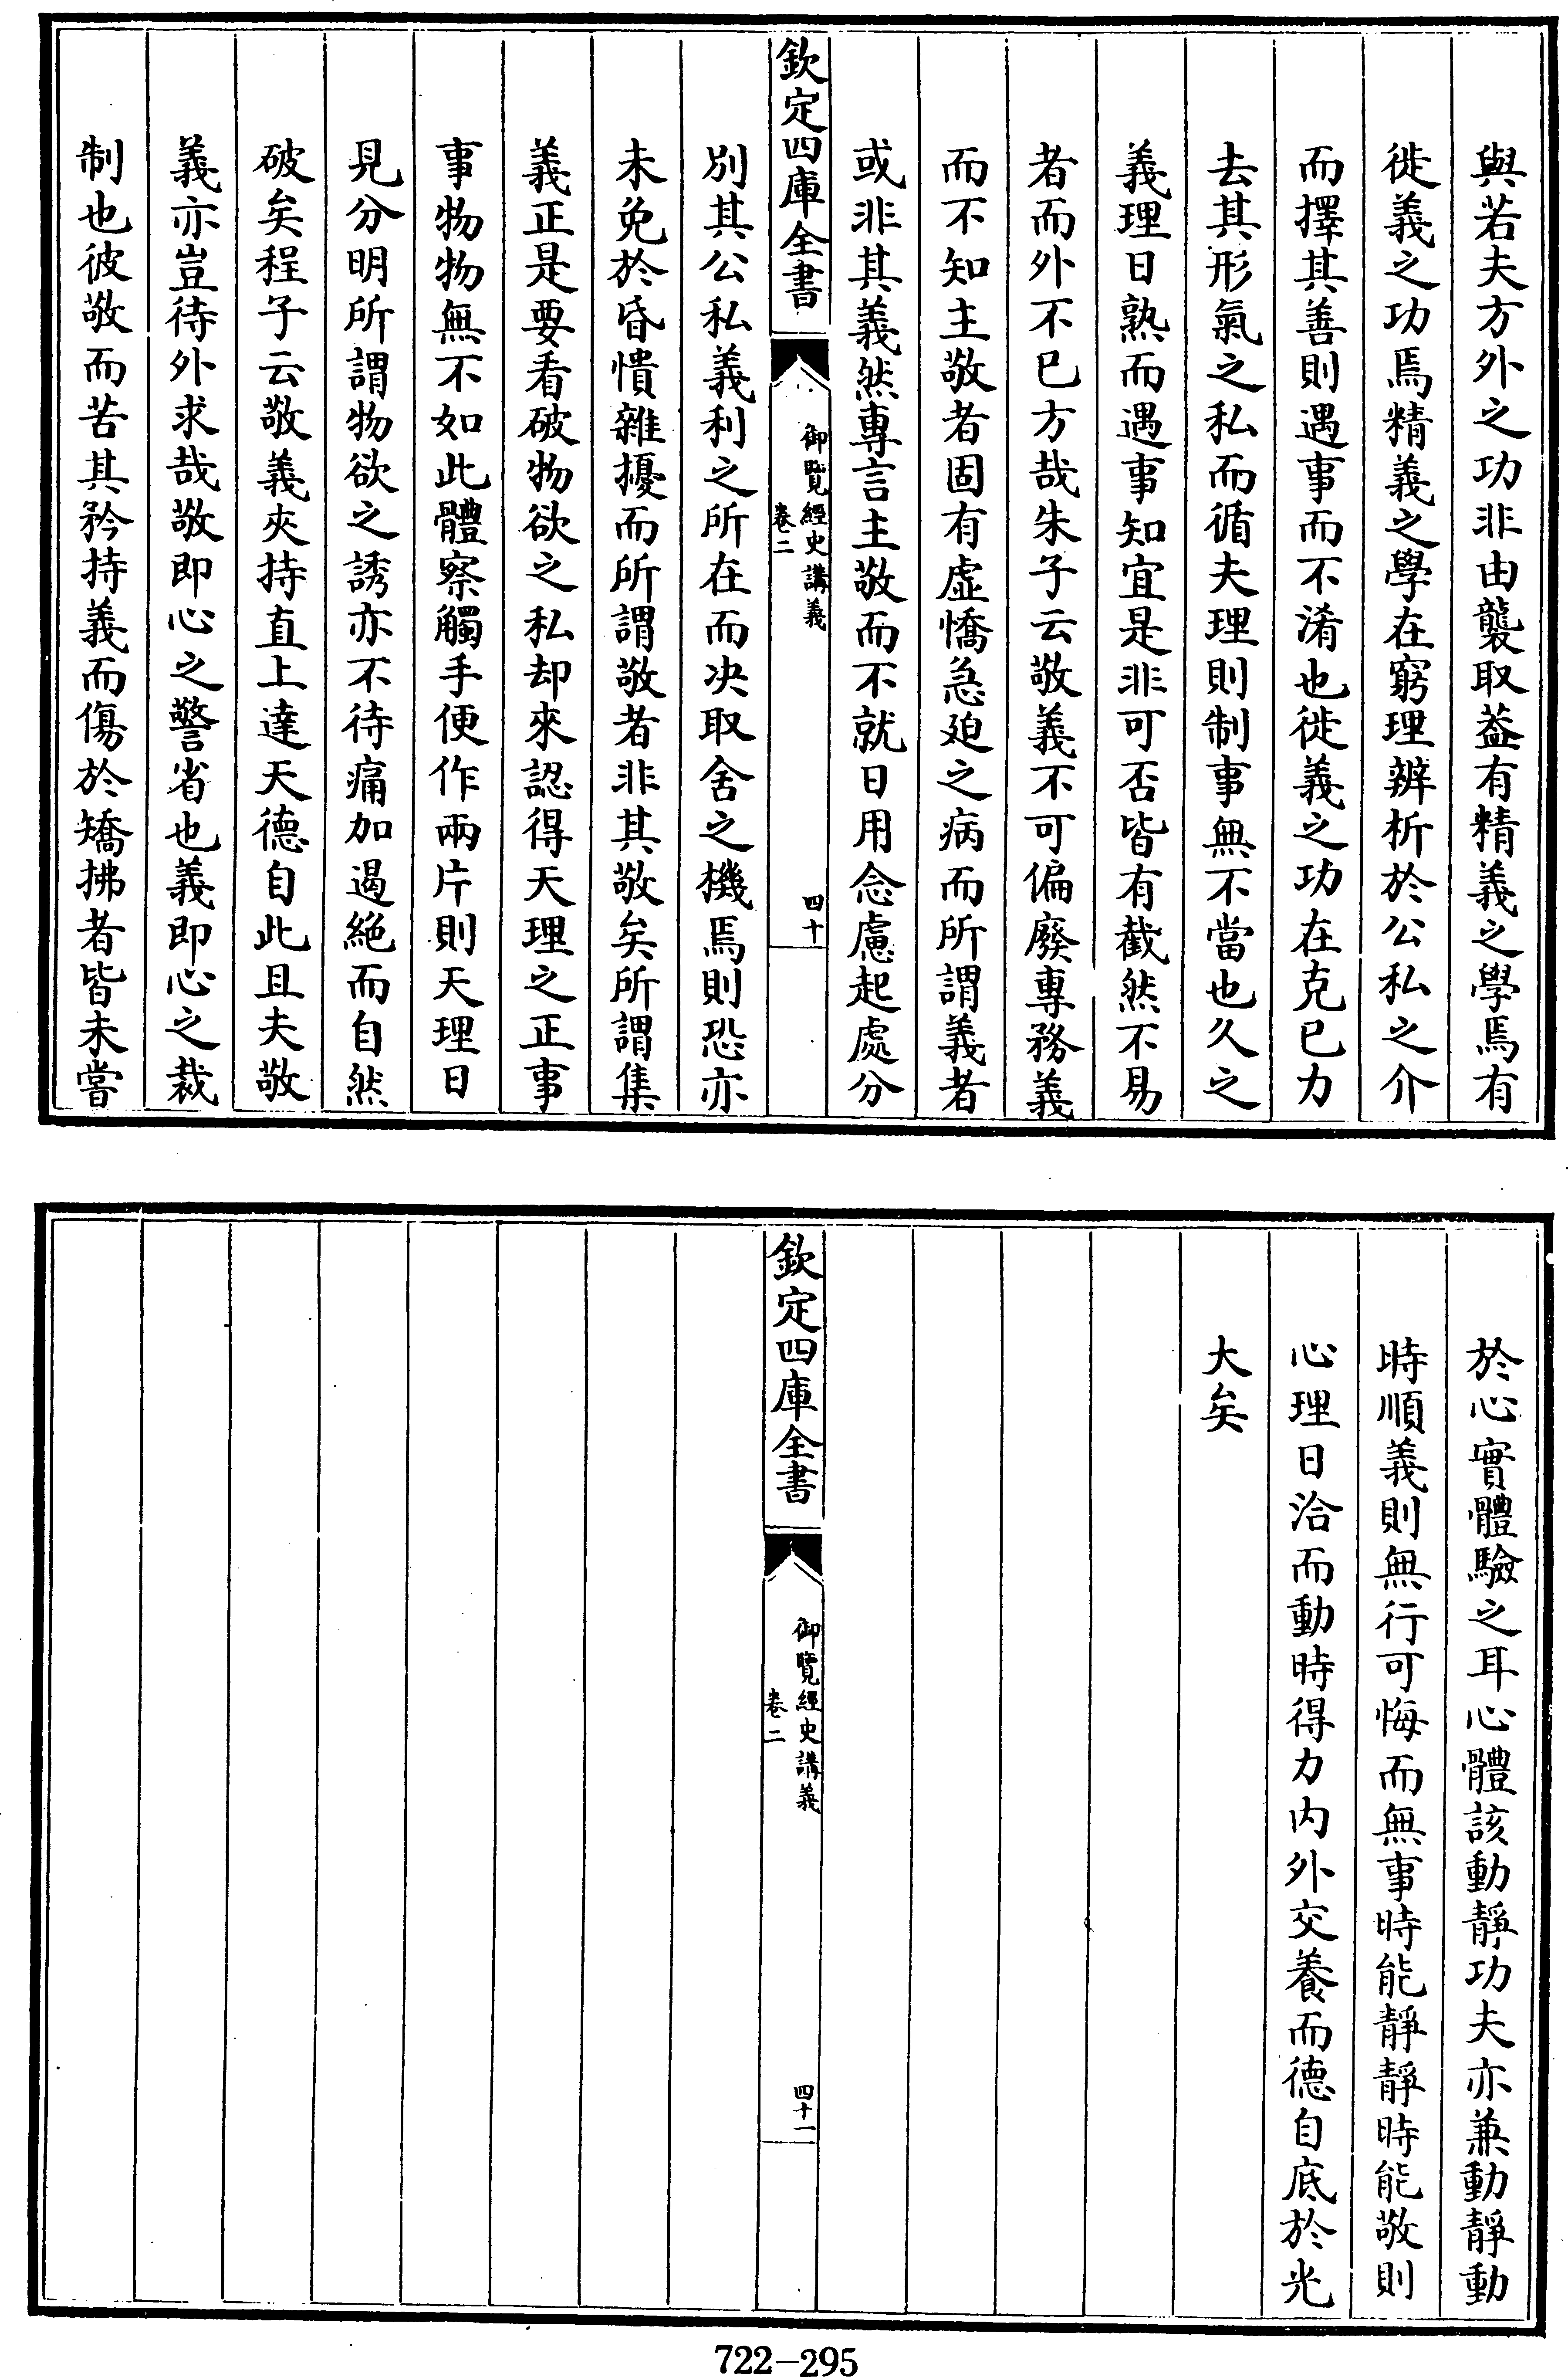 與若夫方外之功非由襲取葢有精義之學焉有
徙義之功焉精義之學在窮理辨析於公私之介
而擇其善則遇事而不淆也徙義之功在克已力
去其形氣之私而循夫理則制事無不當也久之
義理日熟而遇事知宜是非可否皆有截然不易
者而外不已方哉朱子云敬義不可偏廢專務義
而不知主敬者固有虛憍急廹之病而所謂義者
或非其義然專言主敬而不就日用念慮起處分
欽定四庫全書
御覽經史講義
卷二
四十
別其公私義利之所在而决取舍之機焉則恐亦
未免於昏憒雜擾而所謂敬者非其敬矣所謂集
義正是要看破物欲之私却來認得天理之正事
事物物無不如此體察觸手便作兩片則天理日
見分明所謂物欲之誘亦不待痛加遏絕而自然
破矣程子云敬義夾持直上達天德自此且夫敬
義亦豈待外求哉敬即心之警省也義即心之裁
制也彼敬而苦其矜持義而傷於矯拂者皆未嘗
於心實體驗之耳心體該動靜功夫亦兼動靜動
時順義則無行可悔而無事時能靜靜時能敬則
心理日洽而動時得力内外交養而德自底於光
大矣
欽定四庫全書
御覽經史講義
卷二
四十一
722-295